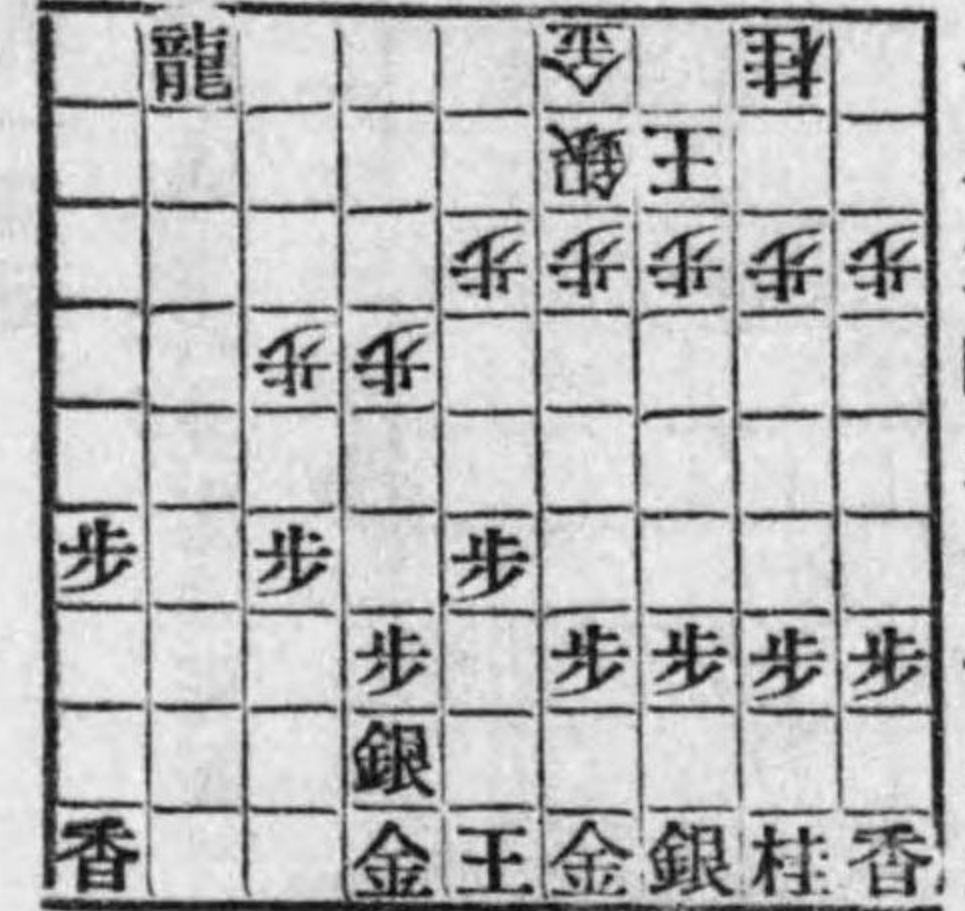 龍 金 桂
銀 王
歩 歩 歩 歩 歩
歩 歩
歩 歩 歩
歩 歩 歩 歩 歩
銀
香 金 王 金 銀 桂 香